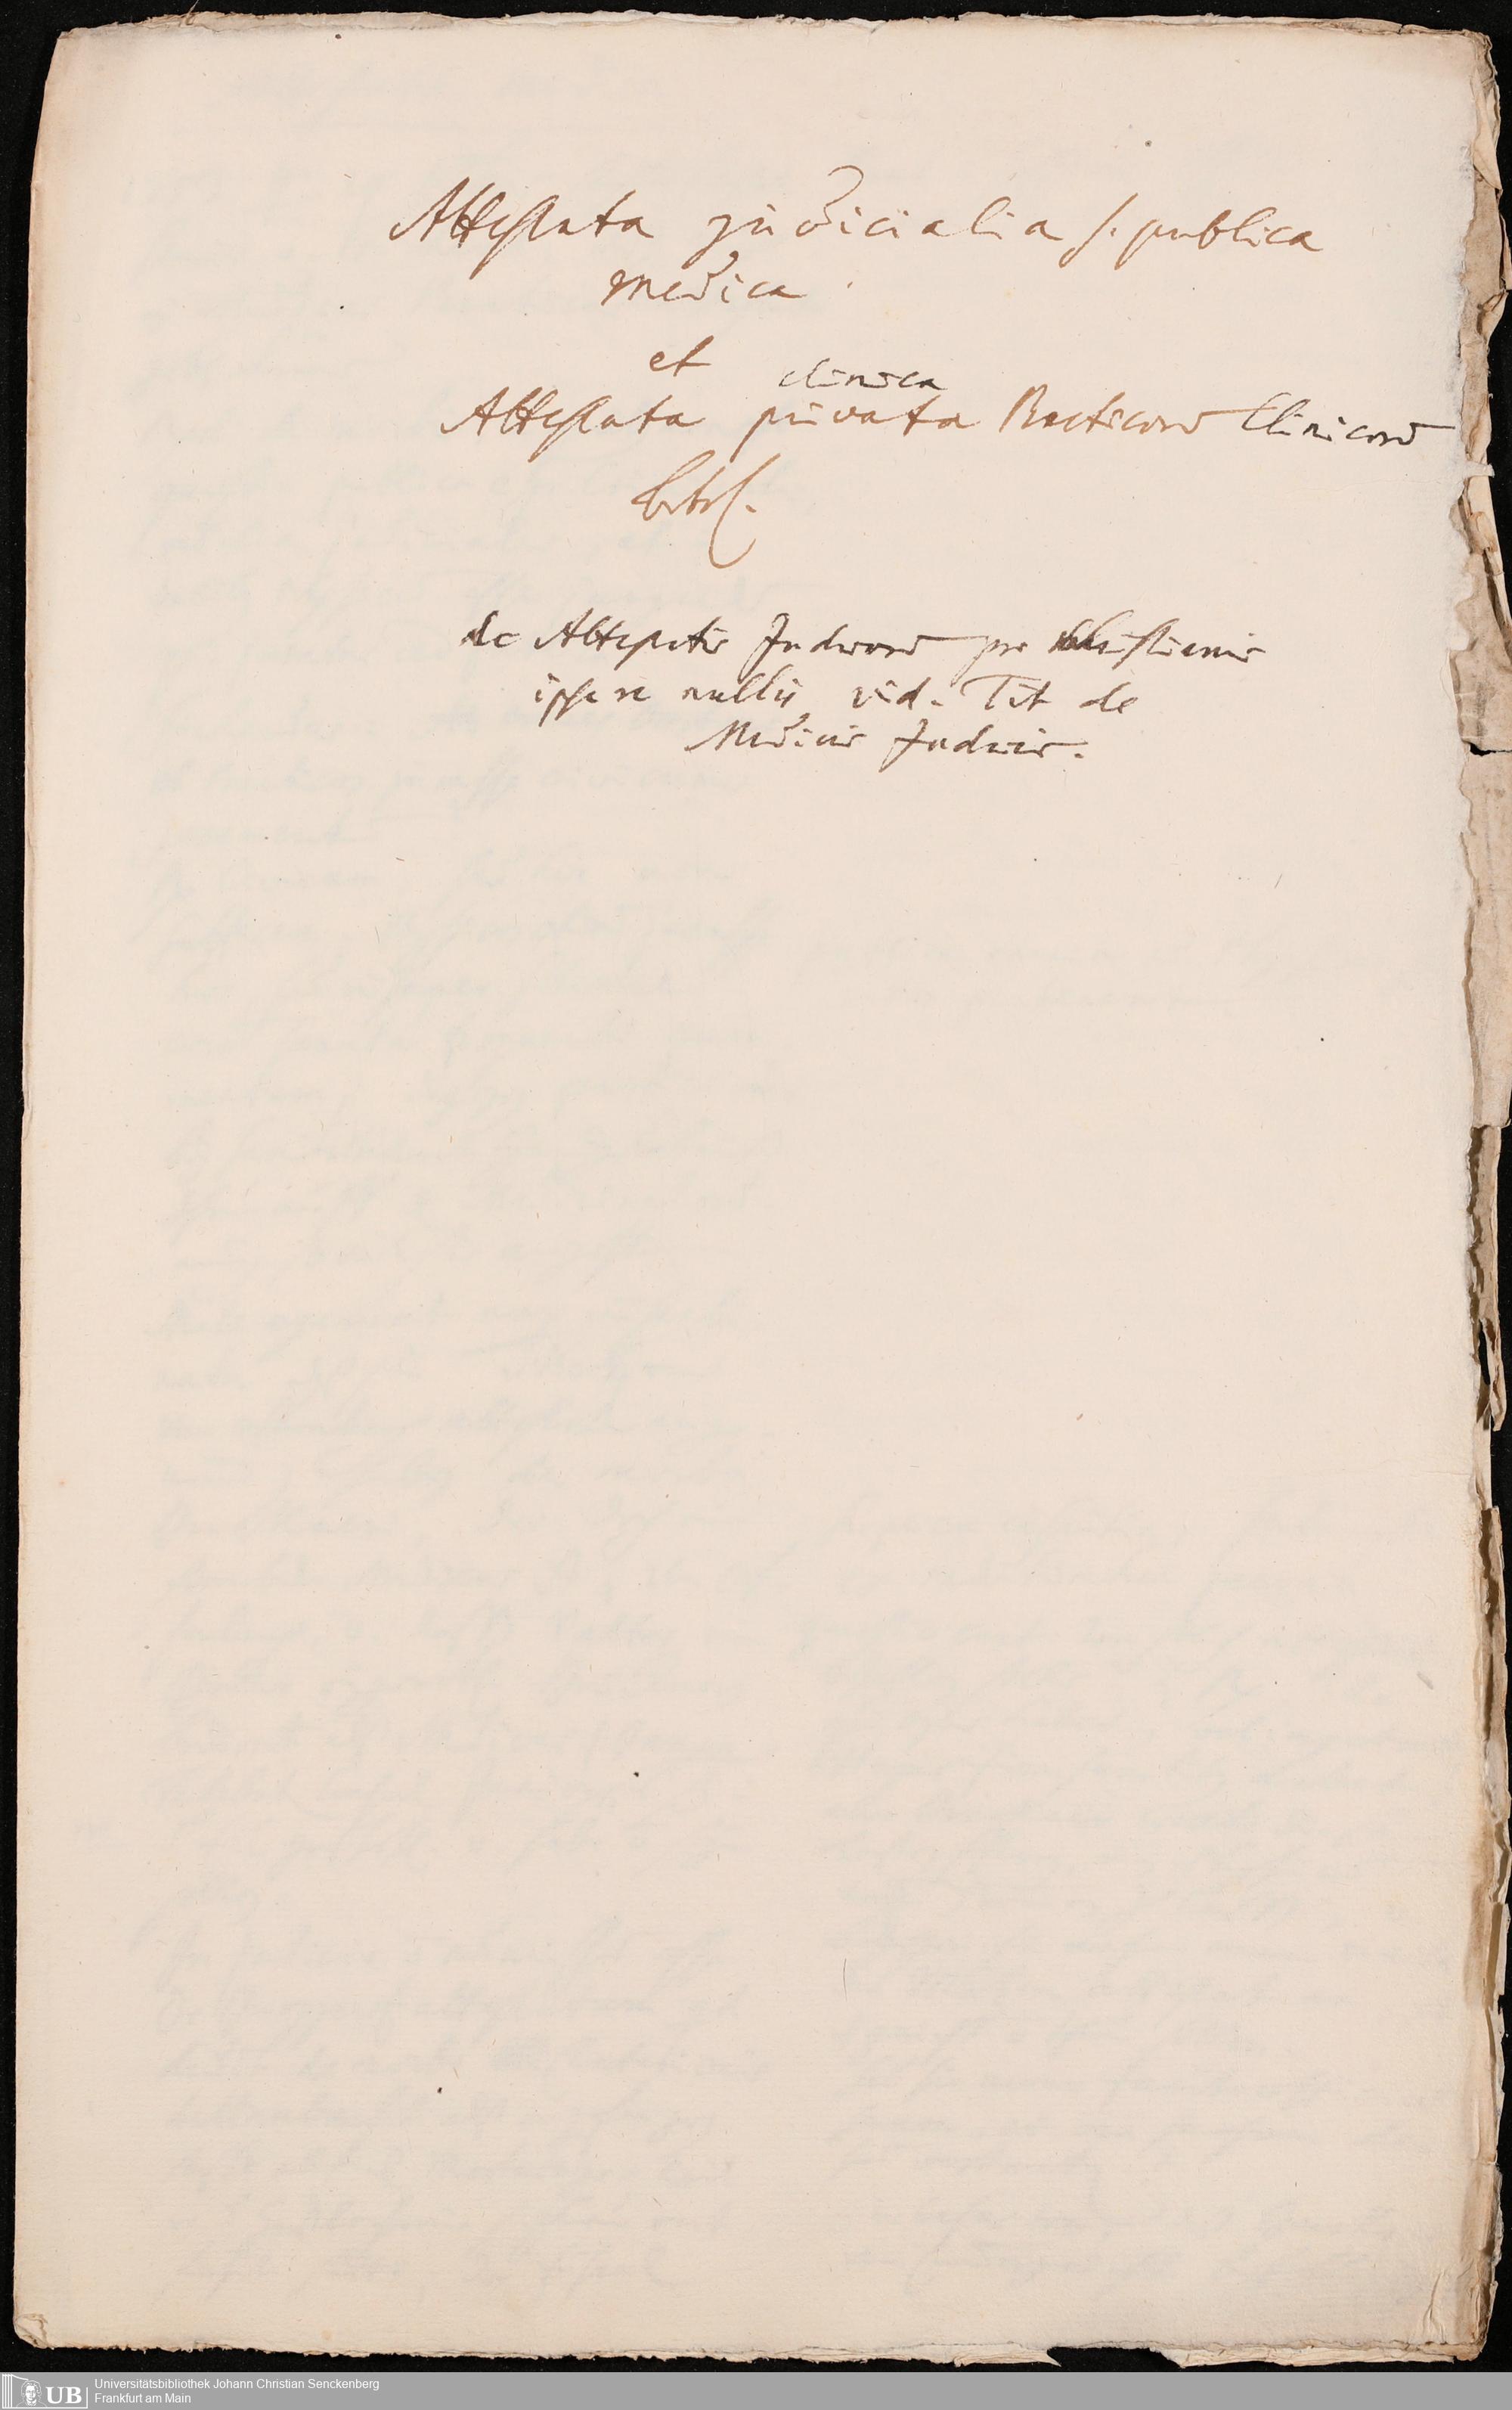 Attestata judicialia s. publica
medica.
et
clinica
Attestata privata Practicorū Clinicorū
de Attestatis Judaeorū pro Christianis
ipso re nullis vid. Tit de
Medicis Judaeis.
UB
Universitätsbibliothek Johann Christian Senckenberg
Frankfurt am Main